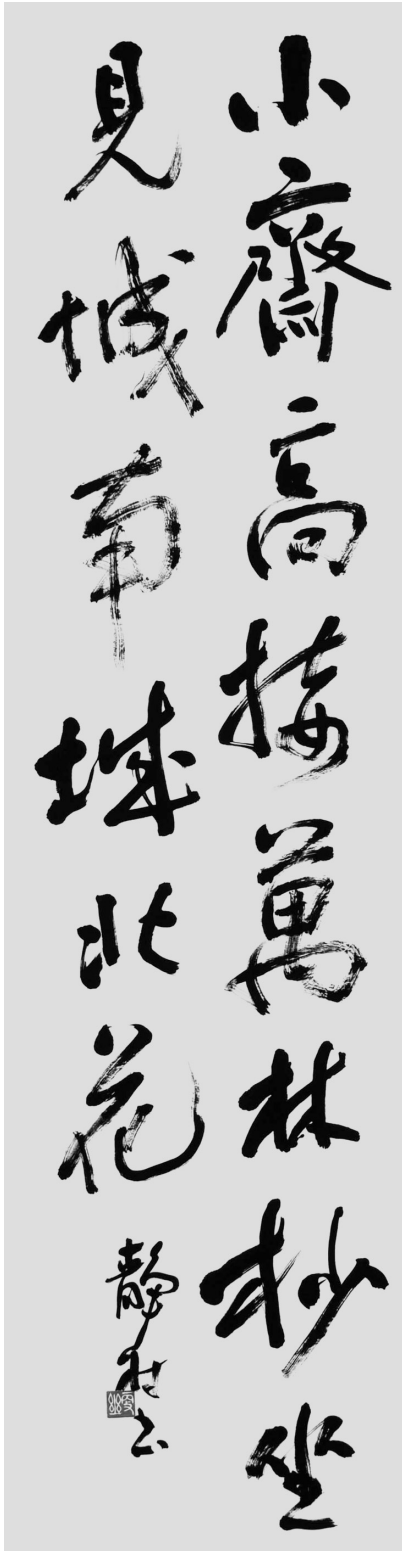 小齋高接萬林杪坐
見城南城北花
靜